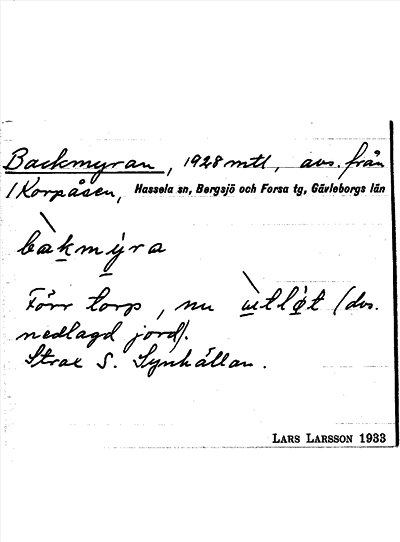 Backmyran, 1928 mtl, avs. från
1 Korpåsen, Hassela sn, Bergsjö och Forsa tg, Gävleborgs län
bàkmýra
Förr torp, nu ùtlǿt (dvs.
nedlagd jord).
Strax S. Synhällan.
LARS LARSSON 1933